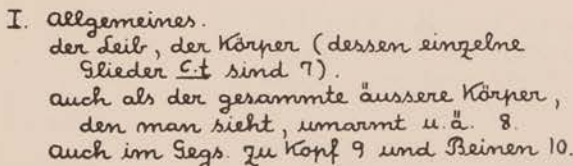 I. Allgemeines.
der Leib, der Körper (dessen einzelne
Glieder c.t sind 7).
auch als der gesammte äussere Körper,
den man sieht, umarmt u.ä. 8.
auch im Gegs. zu Kopf 9 und Beinen 10.